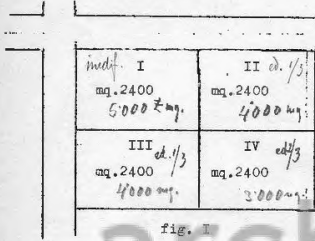 inedif. I
mq.2400
5000 £ mq.
II ed. 1/3
mq.2400
4000 mq.
III ed. 1/3
mq.2400
4000 mq.
IV ed 2/3
mq.2400
3000 mq.
fig. I